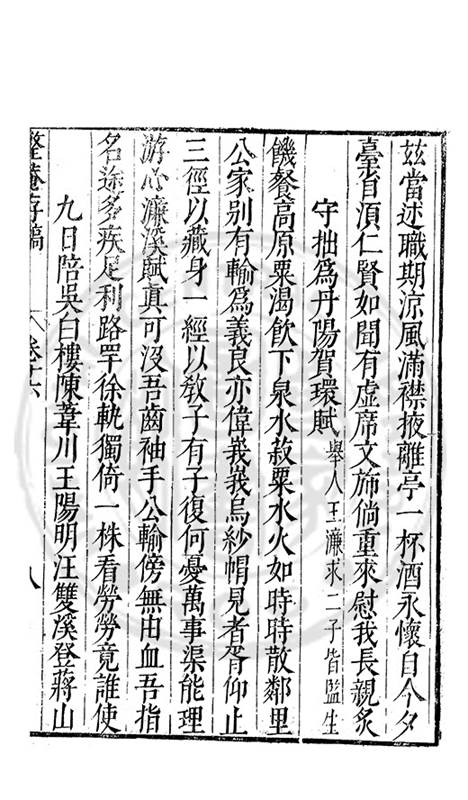 茲當述職期涼風滿襟掖離亭一杯酒永懷自今夕
臺省須仁賢如聞有虛席文斾倘重來慰我長親炙
守拙為丹陽賀環賦舉人王濂求二子皆監生
饑餐高原粟渴飲下泉水菽粟水火如時時散鄰里
公家别有輸為義良亦偉峩峩烏紗帽見者胥仰止
三徑以藏身一經以敎子有子復何憂萬事渠能理
游心濂溪賦真可沒吾齒袖手公輸傍無由血吾指
名途多疾足利路罕徐軌獨倚一株看勞勞竟誰使
九日陪吳白樓陳葦川王陽明汪雙溪登蔣山
整菴存稿 卷十六 八